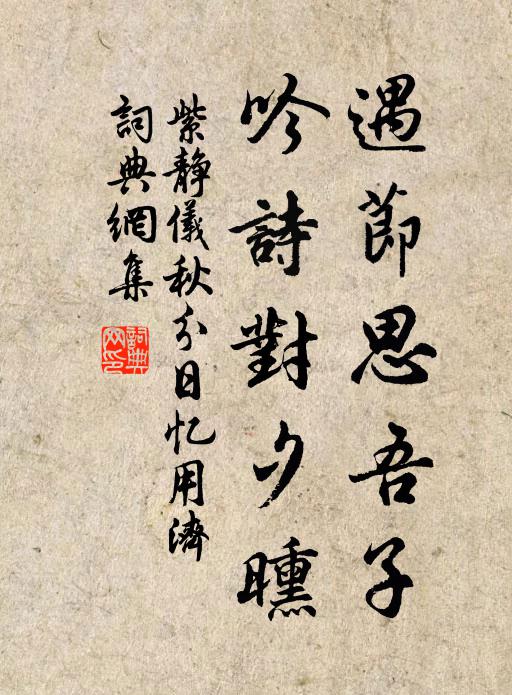 遇節思吾子
吟詩對夕曛
紫静儀秋分日忆用濟
詞典網集
詞典网印